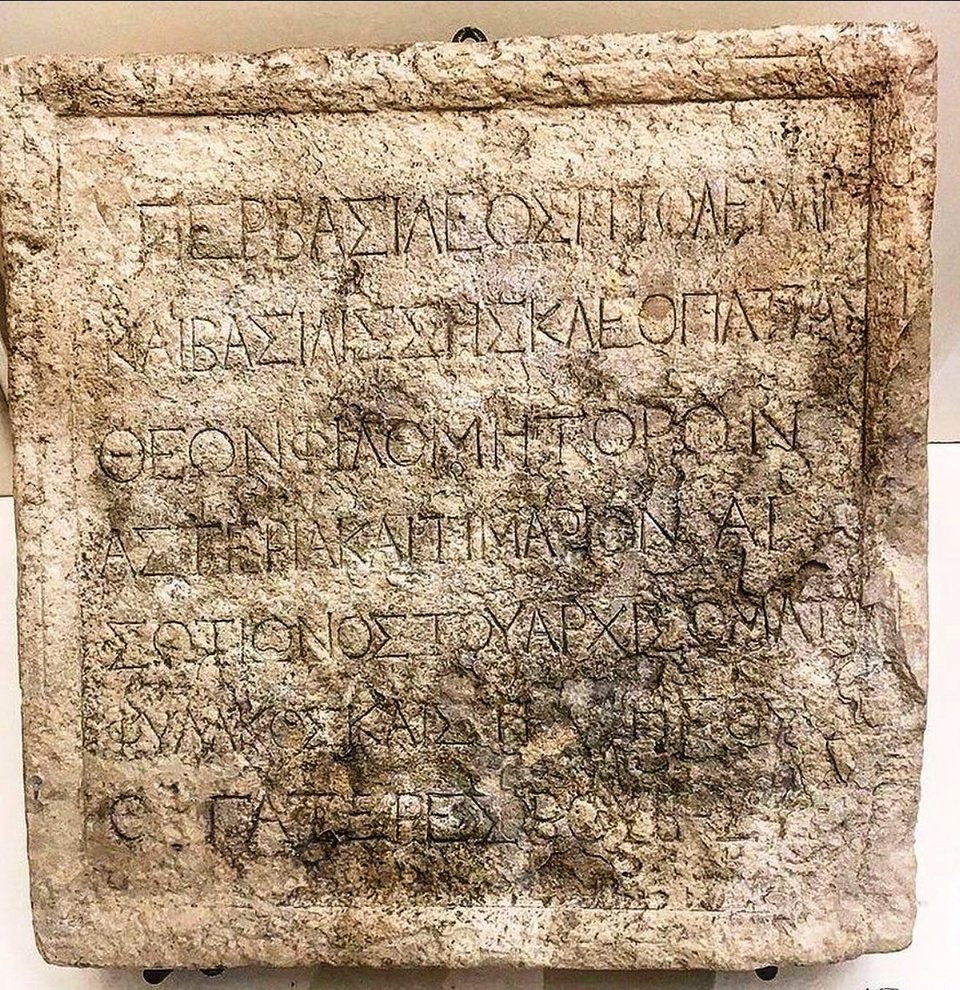 ΥΠΕΡΒΑΣΙΛΕΩΣΠΤΟΛΕΜΑΙ
ΚΑΙΒΑΣΙΛΙΣΣΗΣΚΛΕΟΠΑΤΡΑΣ
ΘΕΩΝΦΙΛΟΜΗΤΟΡΩΝ
ΑΣΤΕΡΙΑΚΑΙΤΙΜΑΡΙΟΝ ΑΙ
ΣΩΤΙΩΝΟΣΤΟΥΑΡΧΙΣΩΜΑΤΟ
ΦΥΛΑΚΟΣΚΑΙ
ΘΥΓΑΤΕΡΕΣ